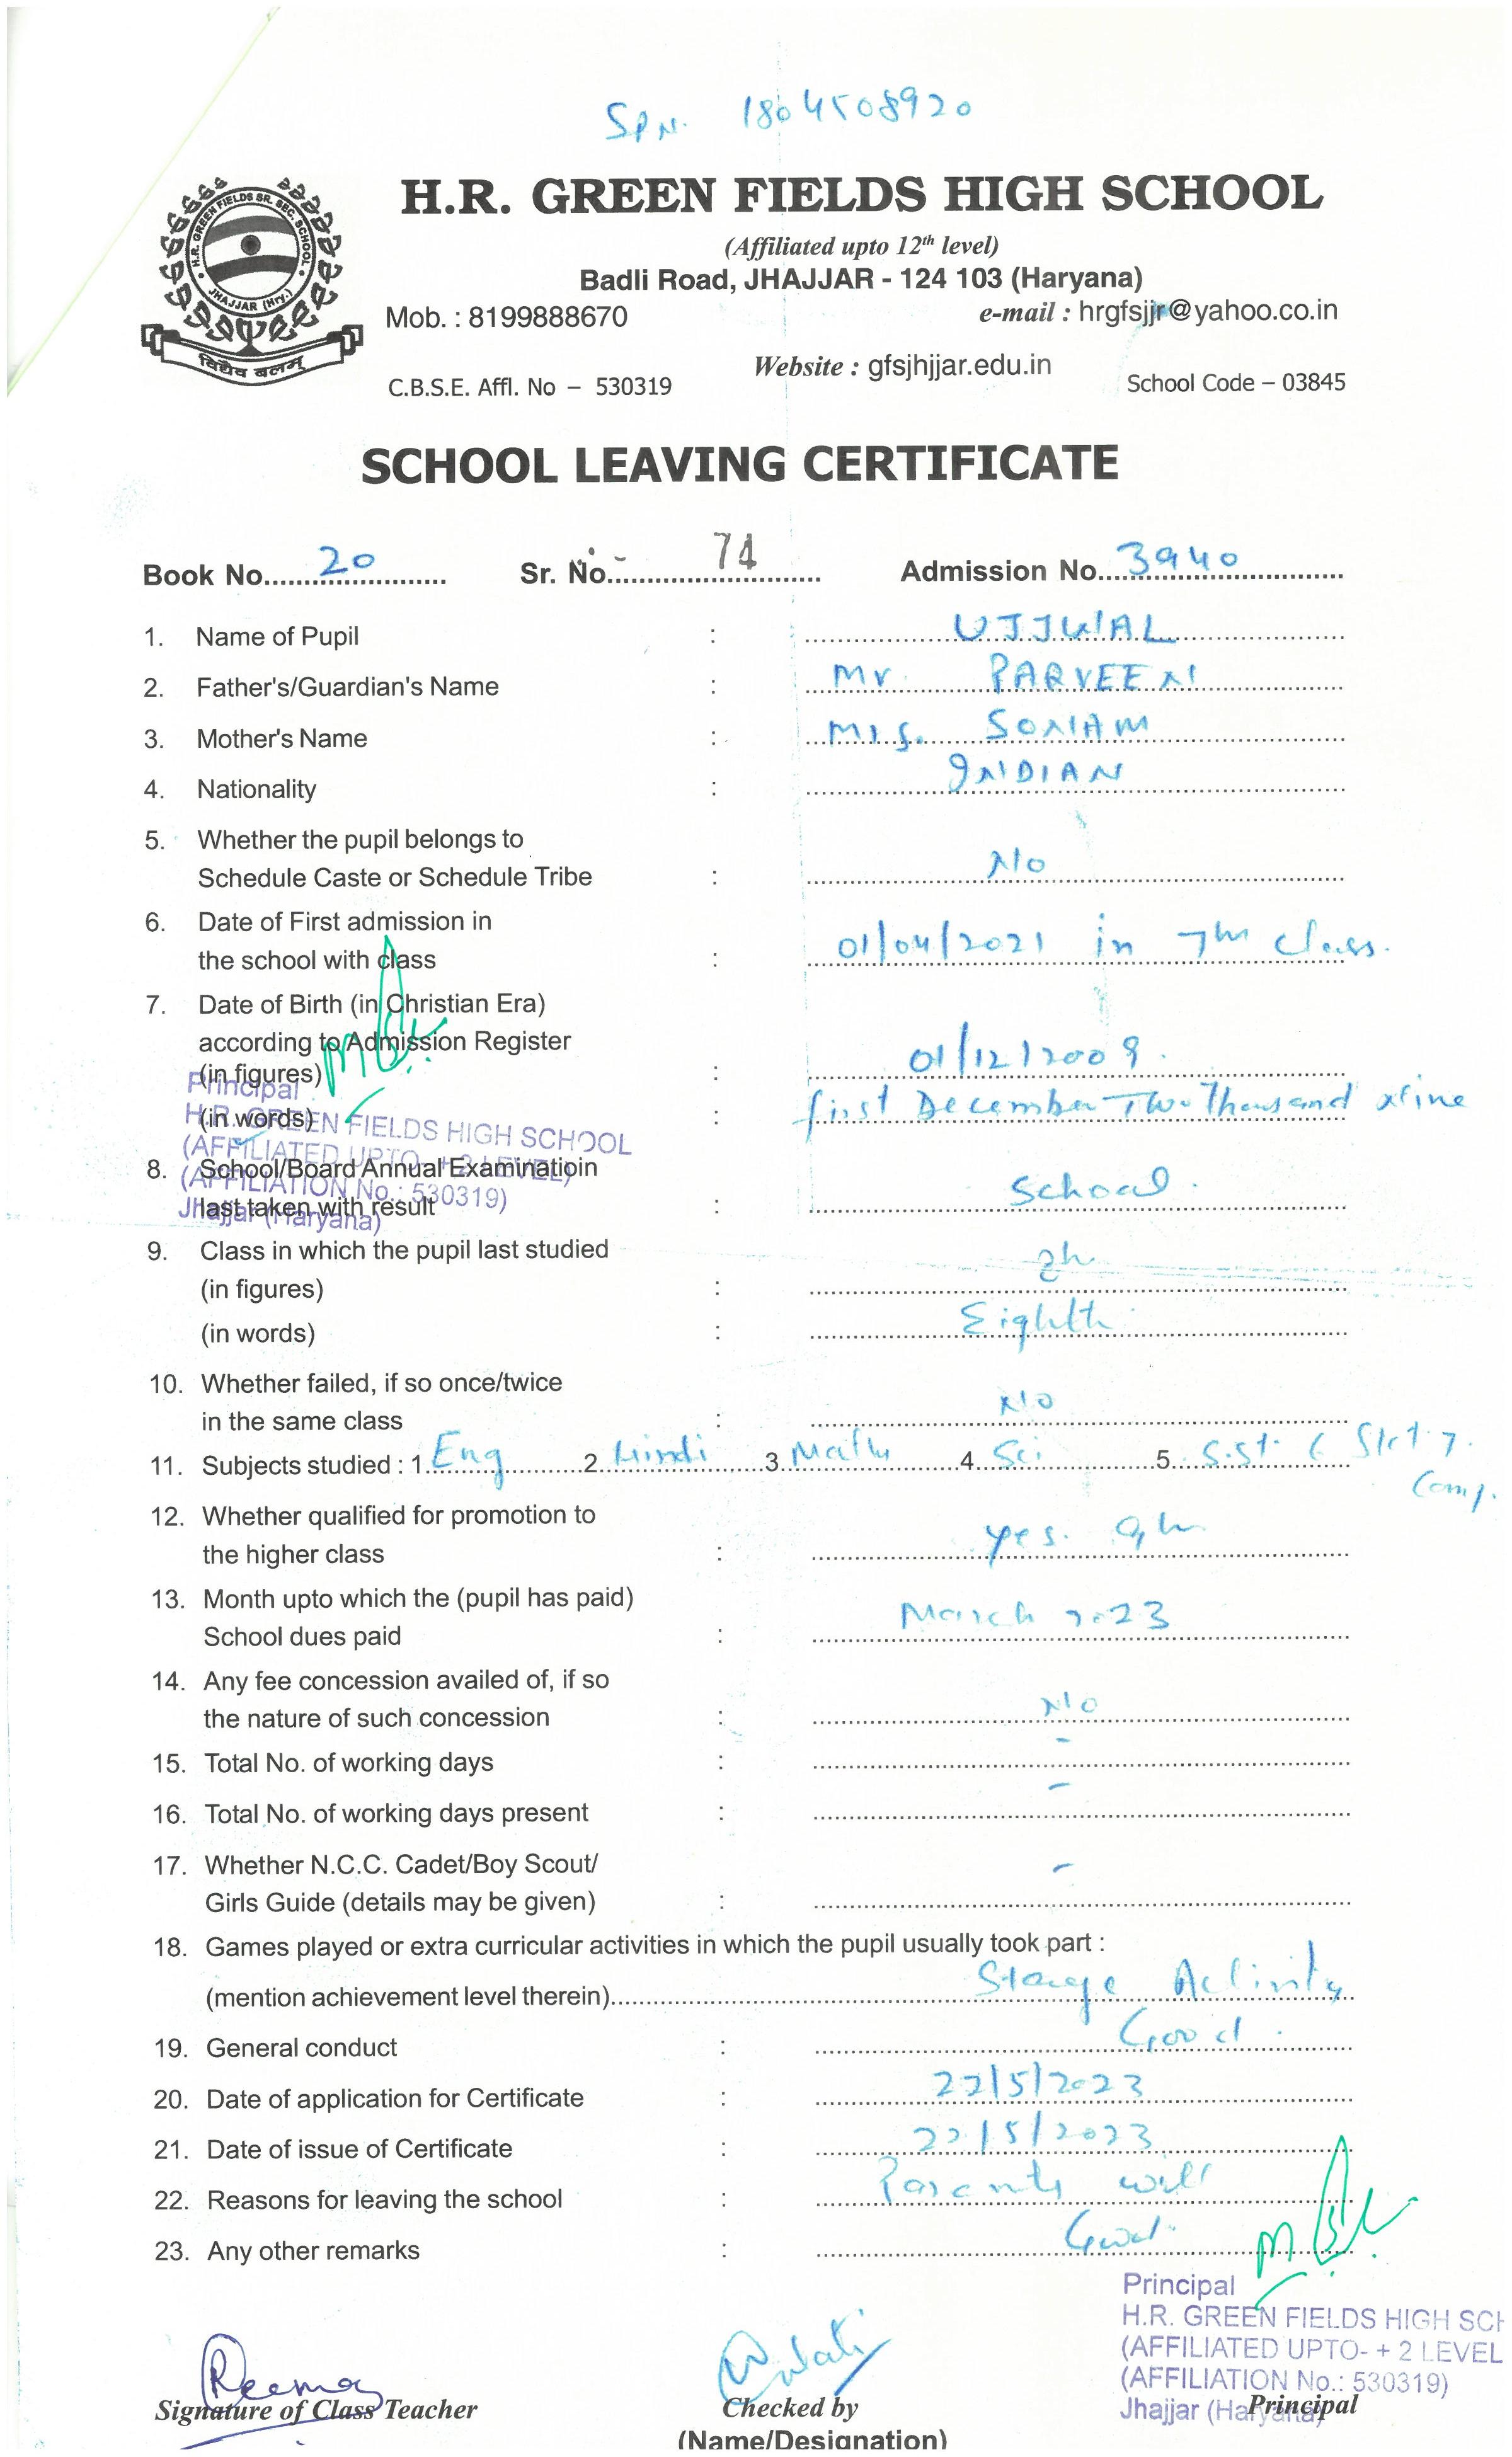 SPN. 1804508920
H.R. GREEN FIELDS SR. SEC. SCHOOL
JHAJJAR (Hry.)
विद्यैव बलम्
H.R. GREEN FIELDS HIGH SCHOOL
(Affiliated upto 12th level)
Badli Road, JHAJJAR - 124 103 (Haryana)
Mob. : 8199888670 e-mail : hrgfsjjr@yahoo.co.in
Website : gfsjhjjar.edu.in
C.B.S.E. Affl. No – 530319 School Code – 03845
SCHOOL LEAVING CERTIFICATE
Book No. 20 Sr. No. 74 Admission No. 3940
1. Name of Pupil : UJJWAL
2. Father's/Guardian's Name : Mr PARVEEN
3. Mother's Name : Mrs. SONAM
4. Nationality : INDIAN
5. Whether the pupil belongs to
Schedule Caste or Schedule Tribe : No
6. Date of First admission in
the school with class : 01/04/2021 in 7th class.
7. Date of Birth (in Christian Era)
according to Admission Register
(in figures) : 01/12/2009.
(in words) : first December Two Thousand Nine
Principal
H.R. GREEN FIELDS HIGH SCHOOL
(AFFILIATED UPTO- + 2 LEVEL)
(AFFILIATION No.: 530319)
Jhajjar (Haryana)
8. School/Board Annual Examinatioin
last taken with result : School.
9. Class in which the pupil last studied
(in figures) : 8th
(in words) : Eighth
10. Whether failed, if so once/twice
in the same class : No
11. Subjects studied : 1. Eng 2. Hindi 3. Math 4. Sci 5. S.St.
Comp.
12. Whether qualified for promotion to
the higher class : yes. 9th
13. Month upto which the (pupil has paid)
School dues paid : March 2023
14. Any fee concession availed of, if so
the nature of such concession : No
15. Total No. of working days : -
16. Total No. of working days present : -
17. Whether N.C.C. Cadet/Boy Scout/
Girls Guide (details may be given) : -
18. Games played or extra curricular activities in which the pupil usually took part :
(mention achievement level therein) Stage Activity
19. General conduct : Good.
20. Date of application for Certificate : 22/5/2023
21. Date of issue of Certificate : 22/5/2023
22. Reasons for leaving the school : Parents will
23. Any other remarks : Good.
Principal
H.R. GREEN FIELDS HIGH SCH
(AFFILIATED UPTO- + 2 LEVEL
(AFFILIATION No.: 530319)
Jhajjar (Haryana)
Reema
Signature of Class Teacher Checked by Principal
(Name/Designation)